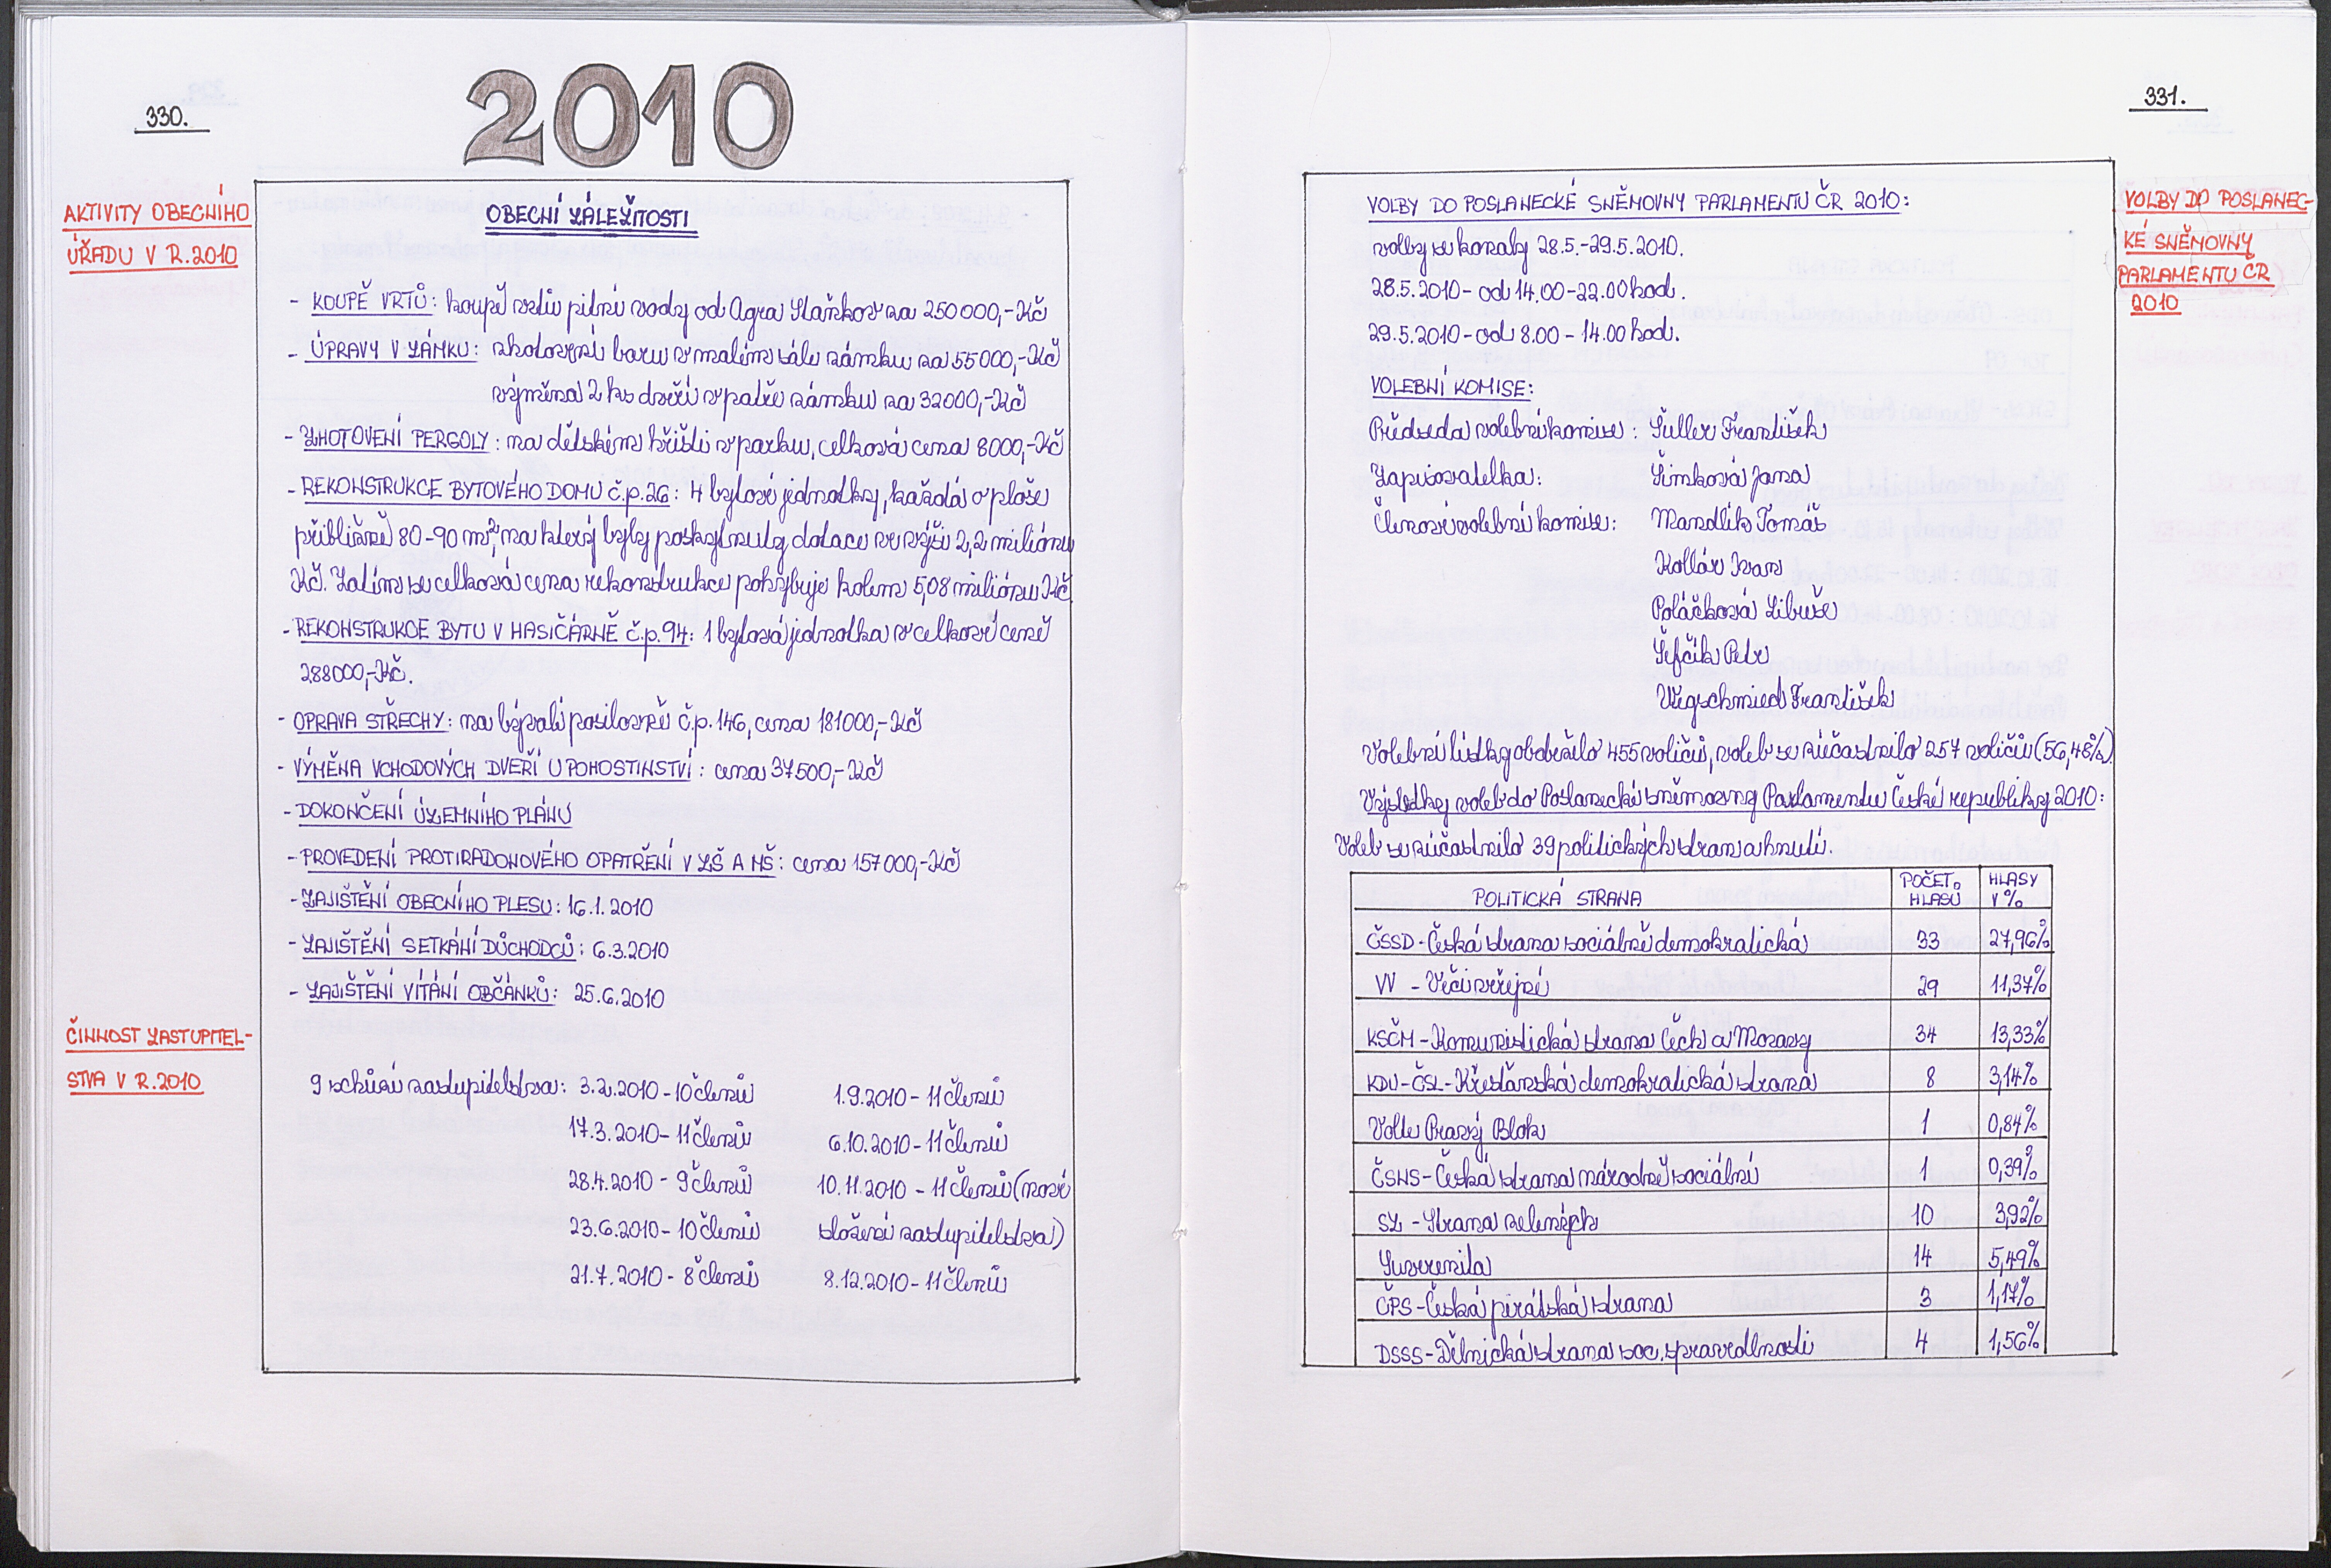 330.
2010
AKTIVITY OBECNÍHO
ÚŘADU V R.2010
OBECNÍ ZÁLEŽITOSTI
- KOUPĚ VRTŮ: koupě vrtů pitné vody od Agra Staňkov za 250000,-Kč
- ÚPRAVY V ZÁMKU: zhotovení baru v malém sále zámku za 55000,-Kč
výměna 2 ks dveří v patře zámku za 32000,-Kč
- ZHOTOVENÍ PERGOLY: na dětském hřišti v parku, celková cena 8000,-Kč
- REKONSTRUKCE BYTOVÉHO DOMU č.p.26: 4 bytové jednotky, každá o ploše
přibližně 80-90 m², na který byly poskytnuty dotace ve výši 2,2 miliónu
Kč. Zatím se celková cena rekonstrukce pohybuje kolem 5,08 miliónu Kč.
- REKONSTRUKCE BYTU V HASIČÁRNĚ č.p.94: 1 bytová jednotka v celkové ceně
288000,-Kč.
- OPRAVA STŘECHY: na bývalé posilovně č.p.146, cena 181000,-Kč
- VÝMĚNA VCHODOVÝCH DVEŘÍ U POHOSTINSTVÍ: cena 37500,-Kč
- DOKONČENÍ ÚZEMNÍHO PLÁNU
- PROVEDENÍ PROTIRADONOVÉHO OPATŘENÍ V ZŠ A MŠ: cena 157000,-Kč
- ZAJIŠTĚNÍ OBECNÍHO PLESU: 16.1.2010
- ZAJIŠTĚNÍ SETKÁNÍ DŮCHODCŮ: 6.3.2010
- ZAJIŠTĚNÍ VÍTÁNÍ OBČÁNKŮ: 25.6.2010
ČINNOST ZASTUPITEL-
STVA V R.2010
9 schůzí zastupitelstva: 3.2.2010 - 10 členů 1.9.2010 - 11 členů
17.3.2010 - 11 členů 6.10.2010 - 11 členů
28.4.2010 - 9 členů 10.11.2010 - 11 členů (nové
23.6.2010 - 10 členů složení zastupitelstva)
21.7.2010 - 8 členů 8.12.2010 - 11 členů
331.
VOLBY DO POSLANEC-
KÉ SNĚMOVNY
PARLAMENTU ČR
2010
VOLBY DO POSLANECKÉ SNĚMOVNY PARLAMENTU ČR 2010:
volby se konaly 28.5.-29.5.2010.
28.5.2010 - od 14.00-22.00 hod.
29.5.2010 - od 8.00 - 14.00 hod.
VOLEBNÍ KOMISE:
Předseda volební komise: Šuller František
Zapisovatelka: Šimková Jana
Členové volební komise: Mandlík Tomáš
Kollár Ivan
Poláčková Libuše
Šefčík Petr
Wigschmied František
Volební lístky obdrželo 455 voličů, voleb se zúčastnilo 257 voličů (56,48%)
Výsledky voleb do Poslanecké sněmovny Parlamentu České republiky 2010:
Voleb se zúčastnilo 39 politických stran a hnutí.
POLITICKÁ STRANA POČET HLASŮ HLASY V %
ČSSD - Česká strana sociálně demokratická 33 27,96%
VV - Věci veřejné 29 11,37%
KSČM - Komunistická strana Čech a Moravy 34 13,33%
KDU-ČSL - Křesťanská demokratická strana 8 3,14%
Volte Pravý Blok 1 0,84%
ČSNS - Česká strana národně sociální 1 0,39%
SZ - Strana zelených 10 3,92%
Suverenita 14 5,49%
ČPS - Česká pirátská strana 3 1,17%
DSSS - Dělnická strana soc. spravedlnosti 4 1,56%